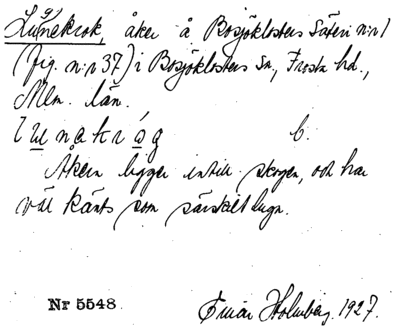 Lugnekrok, åker å Bosjöklosters Säteri n:r 1
(fig. n:r 37) i Bosjöklosters sn, Frosta hd.,
Mlm. län.
lu̲nakro̲g b.
Åkern ligger intill skogen, och har
väl känts som särskilt lugn.
Nr 5548 Einar Holmberg. 1927.